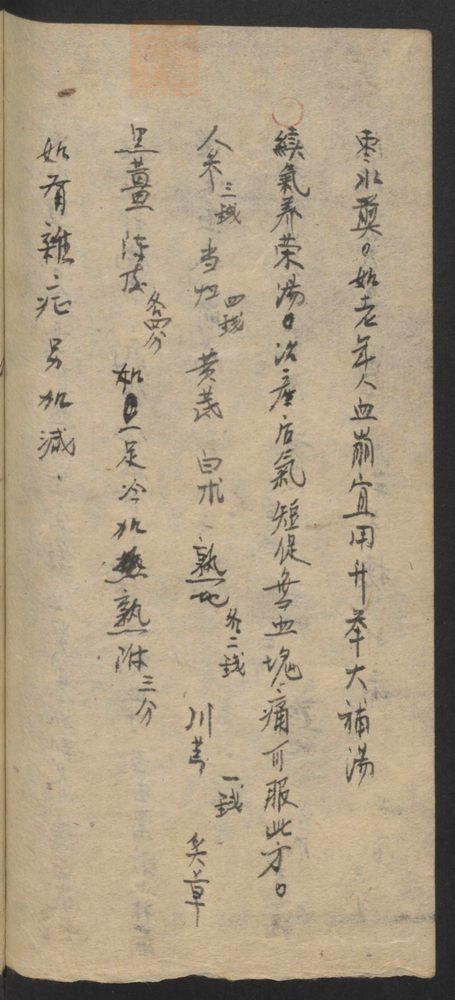 枣水煎。如老年人血崩宜用升举大補湯
續氣养荣湯。治產后氣短促無血塊痛可服此方。
人参三錢 当归四錢 黄芪 白术 熟地各二錢 川芎一錢 炙草
黑薑 陈皮各四分 如手足冷加熟附三分
如有雜症另加減.